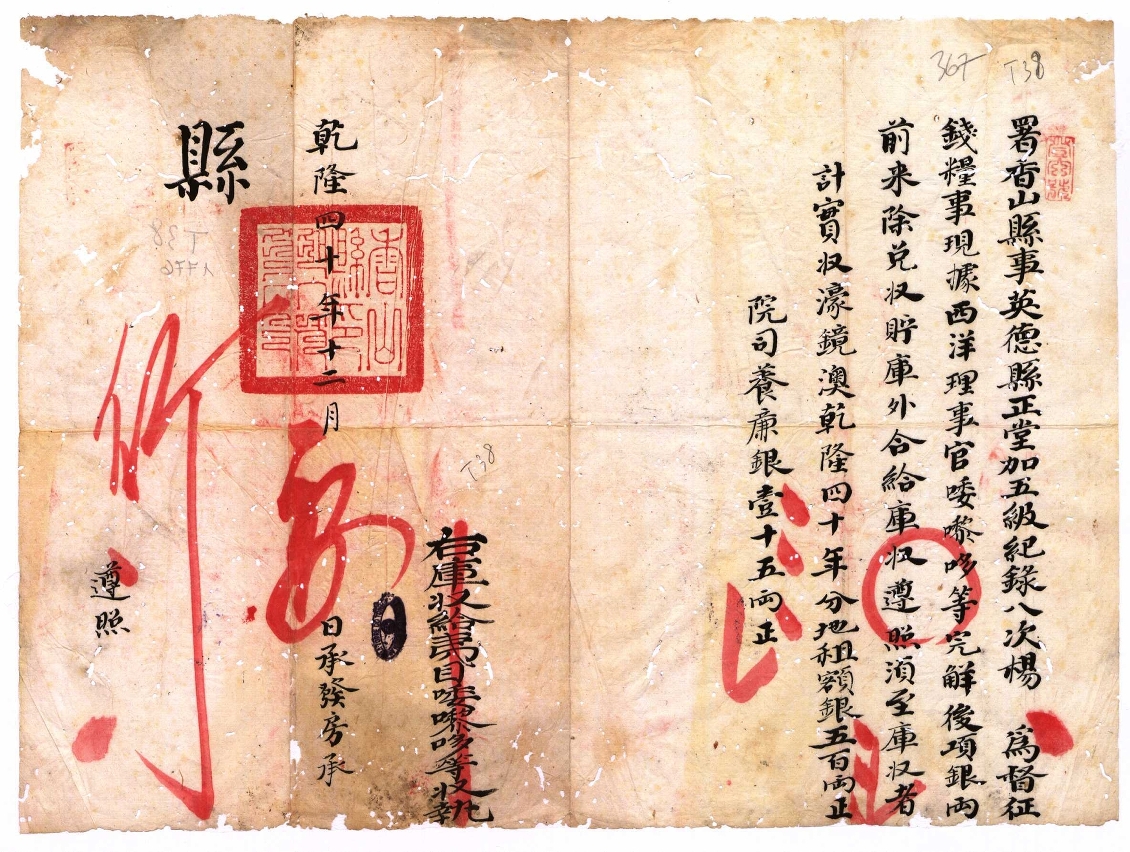 367 T38
署香山縣事英德縣正堂加五級紀錄八次楊 爲督征
錢糧事現據西洋理事官喽嚟哆等完解後項銀兩
前来除兑收貯庫外合給庫收遵照須至庫收者
計實收濠鏡澳乾隆四十年分地租額銀五百両正
院司養廉銀壹十五両正
右庫收給夷目喽嚟哆等收執
T38
乾隆四十年十二月 日承發房承
縣
T38
1776
遵照